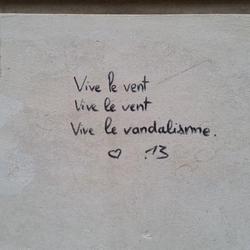 Vive le vent
Vive le vent
Vive le vandalisme.
♡ .13